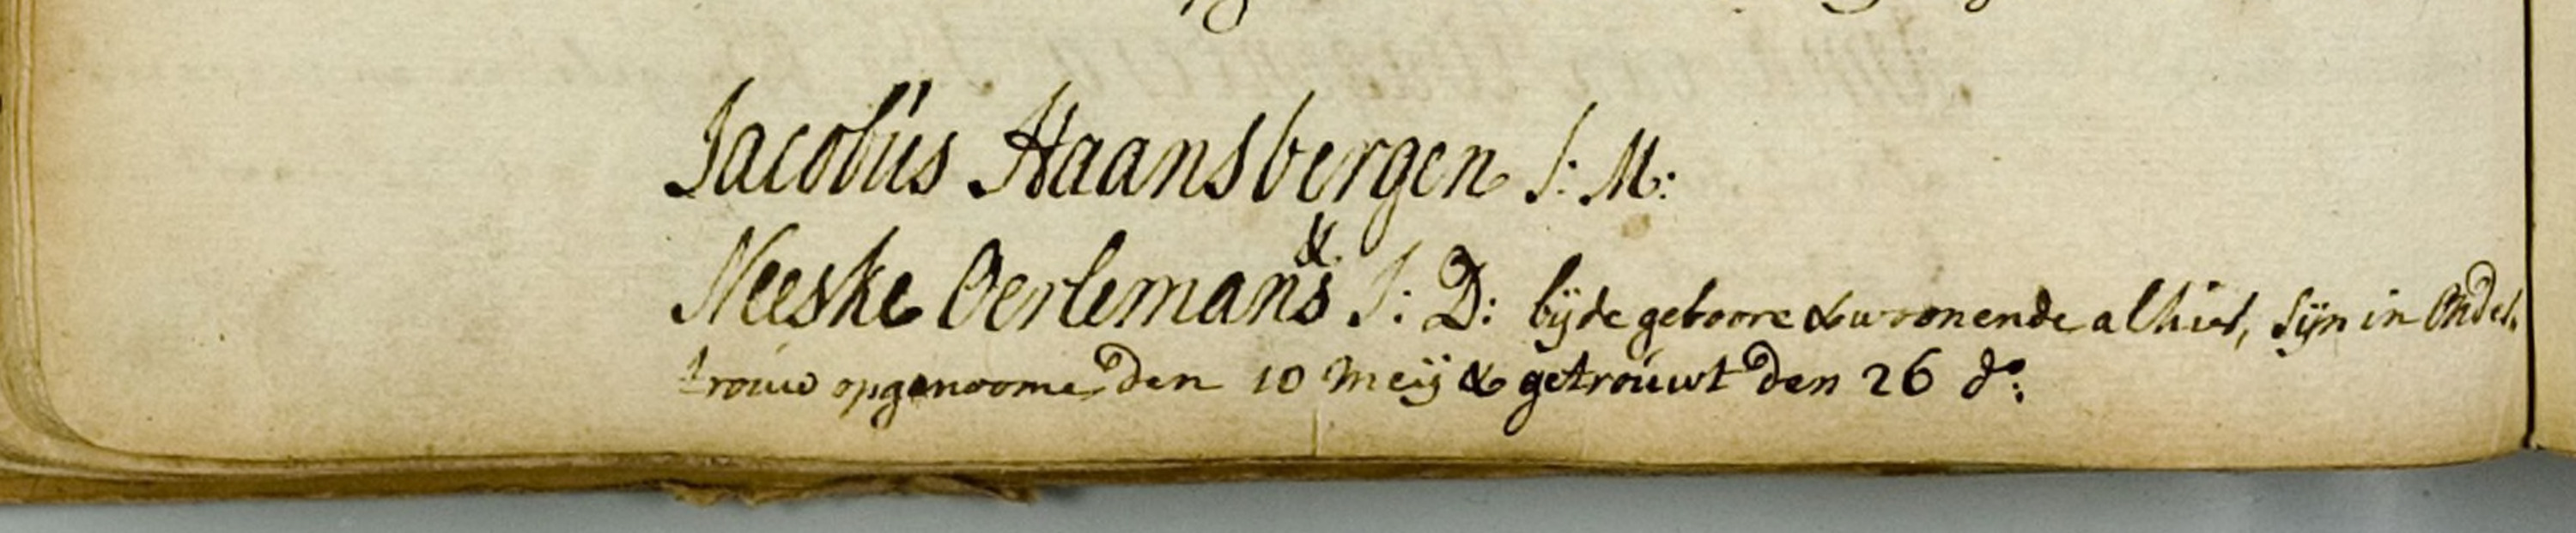 Jacobús Haansbergen J: M:
&
Neeske Oerlemans J: D: bijde geboore & woonende alhier, sijn in Onder,
troúw opgenoome den 10 Meij & getroúwt den 26 do: